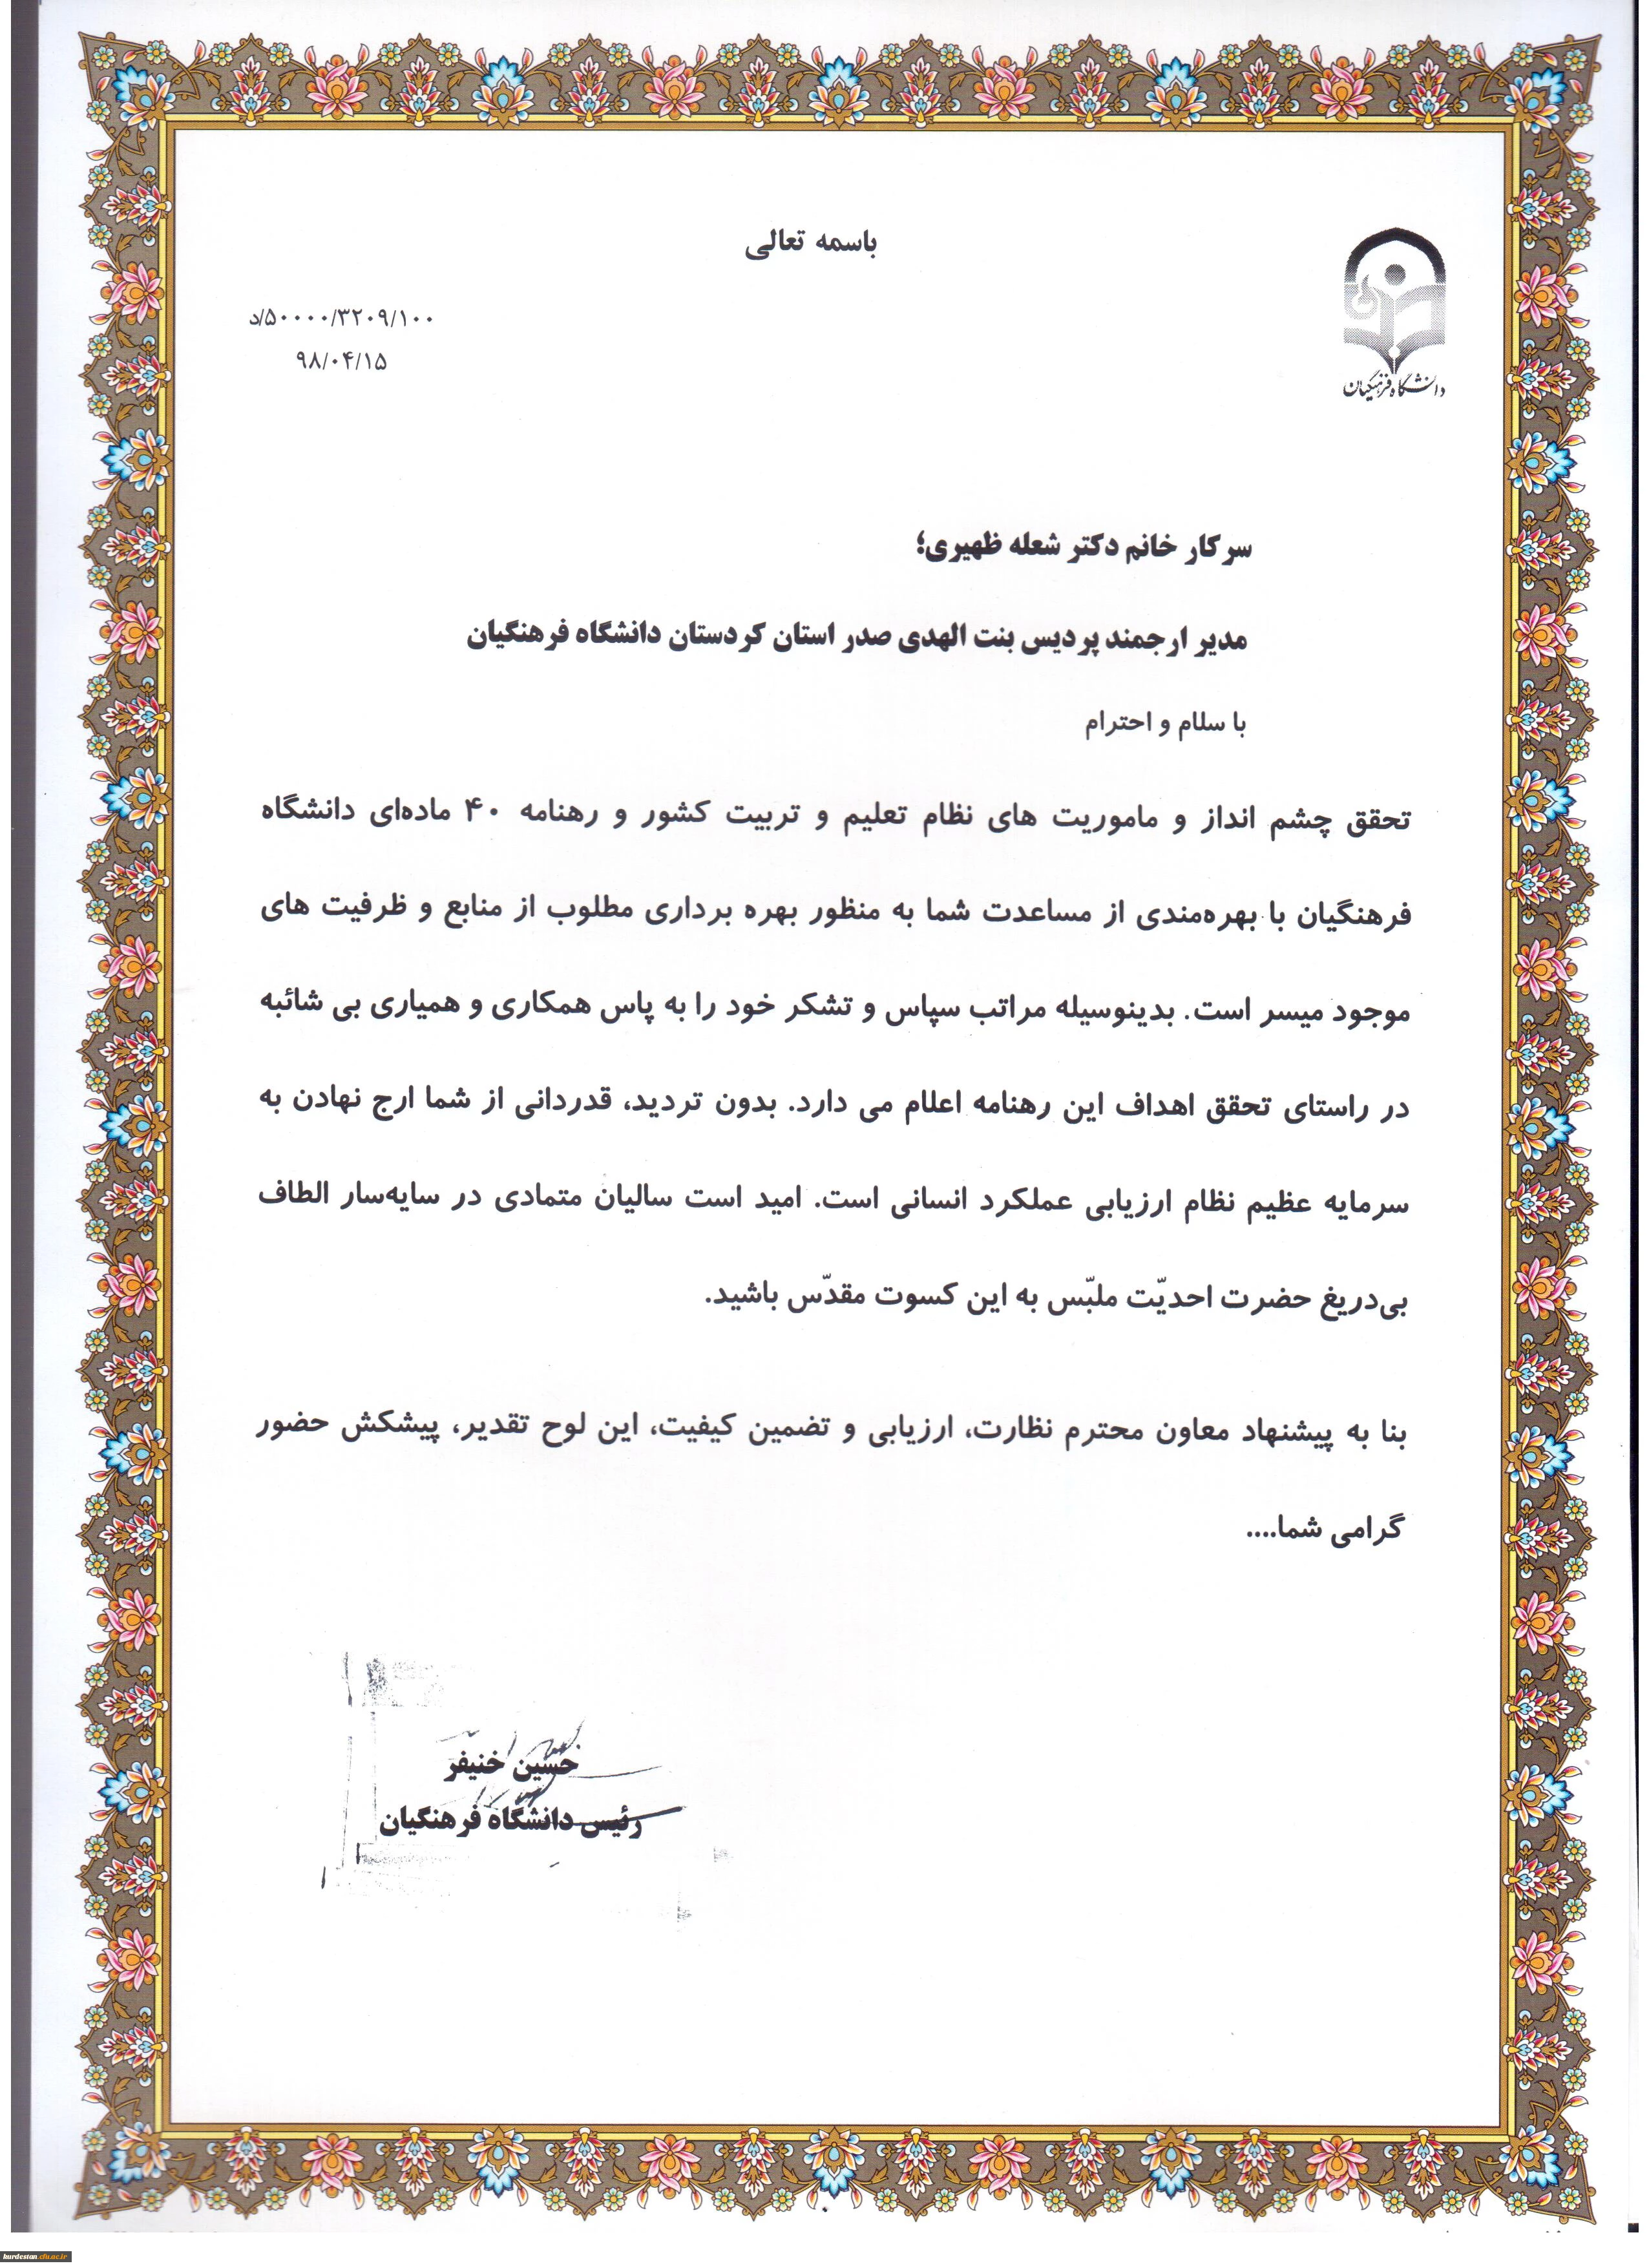 باسمه تعالی
دانشگاه فرهنگیان
۵۰۰۰۰/۳۲۰۹/۱۰۰/د
۹۸/۰۴/۱۵
سرکار خانم دکتر شعله ظهیری؛
مدیر ارجمند پردیس بنت الهدی صدر استان کردستان دانشگاه فرهنگیان
با سلام و احترام
تحقق چشم انداز و ماموریت های نظام تعلیم و تربیت کشور و رهنامه ۴۰ ماده‌ای دانشگاه
فرهنگیان با بهره‌مندی از مساعدت شما به منظور بهره برداری مطلوب از منابع و ظرفیت های
موجود میسر است. بدینوسیله مراتب سپاس و تشکر خود را به پاس همکاری و همیاری بی شائبه
در راستای تحقق اهداف این رهنامه اعلام می دارد. بدون تردید، قدردانی از شما ارج نهادن به
سرمایه عظیم نظام ارزیابی عملکرد انسانی است. امید است سالیان متمادی در سایه‌سار الطاف
بی‌دریغ حضرت احدیّت ملبّس به این کسوت مقدّس باشید.
بنا به پیشنهاد معاون محترم نظارت، ارزیابی و تضمین کیفیت، این لوح تقدیر، پیشکش حضور
گرامی شما....
حسین خنیفر
رئیس دانشگاه فرهنگیان
kurdestan.cfu.ac.ir